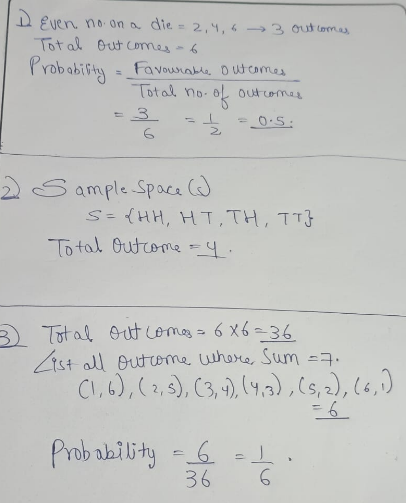 1) Even no. on a die = 2, 4, 6 → 3 outcomes
Total outcomes = 6
Probability = Favourable outcomes / Total no. of outcomes
= 3/6 = 1/2 = 0.5.
2) Sample Space (s)
S = {HH, HT, TH, TT}
Total Outcome = 4.
3) Total outcomes = 6 x 6 = 36
List all outcome where Sum = 7.
(1,6), (2,5), (3,4), (4,3), (5,2), (6,1)
= 6
Probability = 6/36 = 1/6.